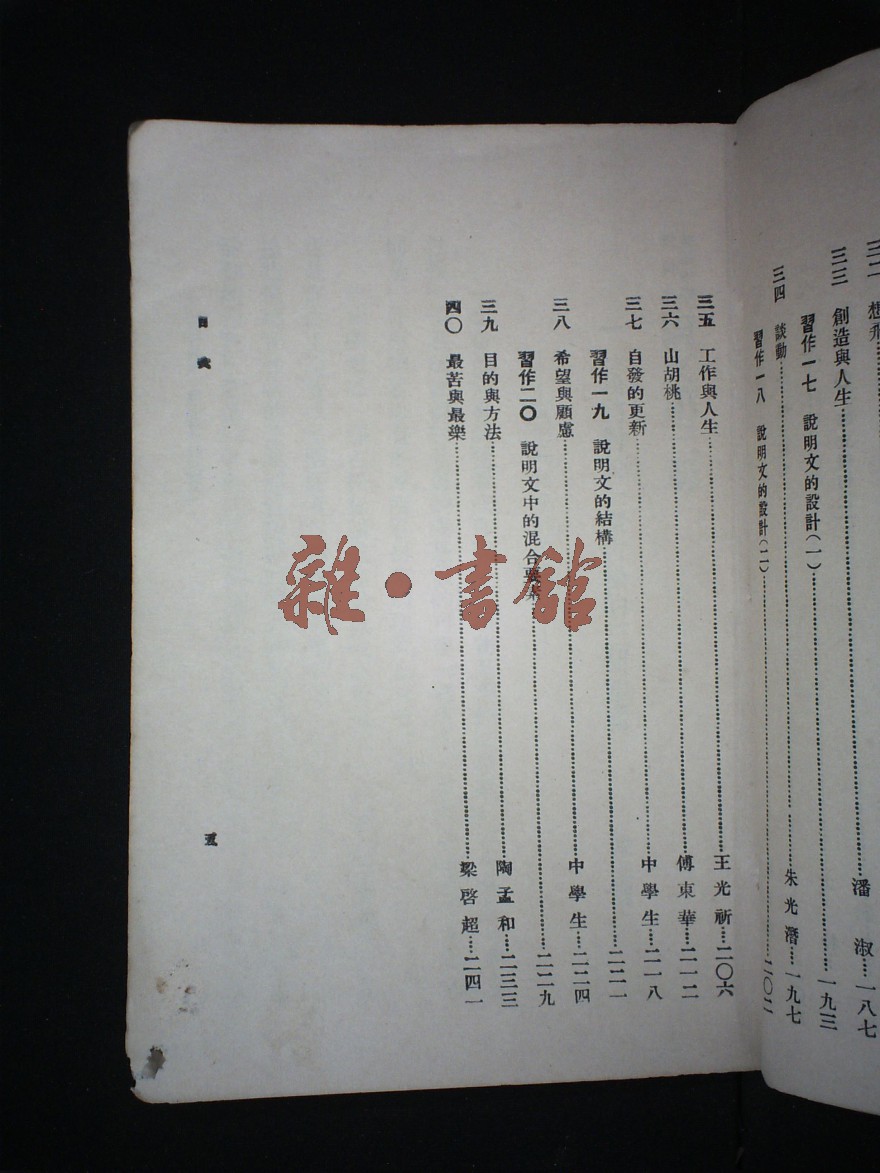 三二 想飛
三三 創造與人生……潘淑……一八七
習作一七 說明文的設計(一)……一九三
三四 談動……朱光潛……一九七
習作一八 說明文的設計(二)……二〇二
三五 工作與人生……王光祈……二〇六
三六 山胡桃……傅東華……二一二
三七 自發的更新……中學生……二一八
習作一九 說明文的結構……二二一
三八 希望與顧慮……中學生……二二四
習作二〇 說明文中的混合要素……二二九
三九 目的與方法……陶孟和……二三三
四〇 最苦與最樂……梁啓超……二四一
目次
五
雜·書館